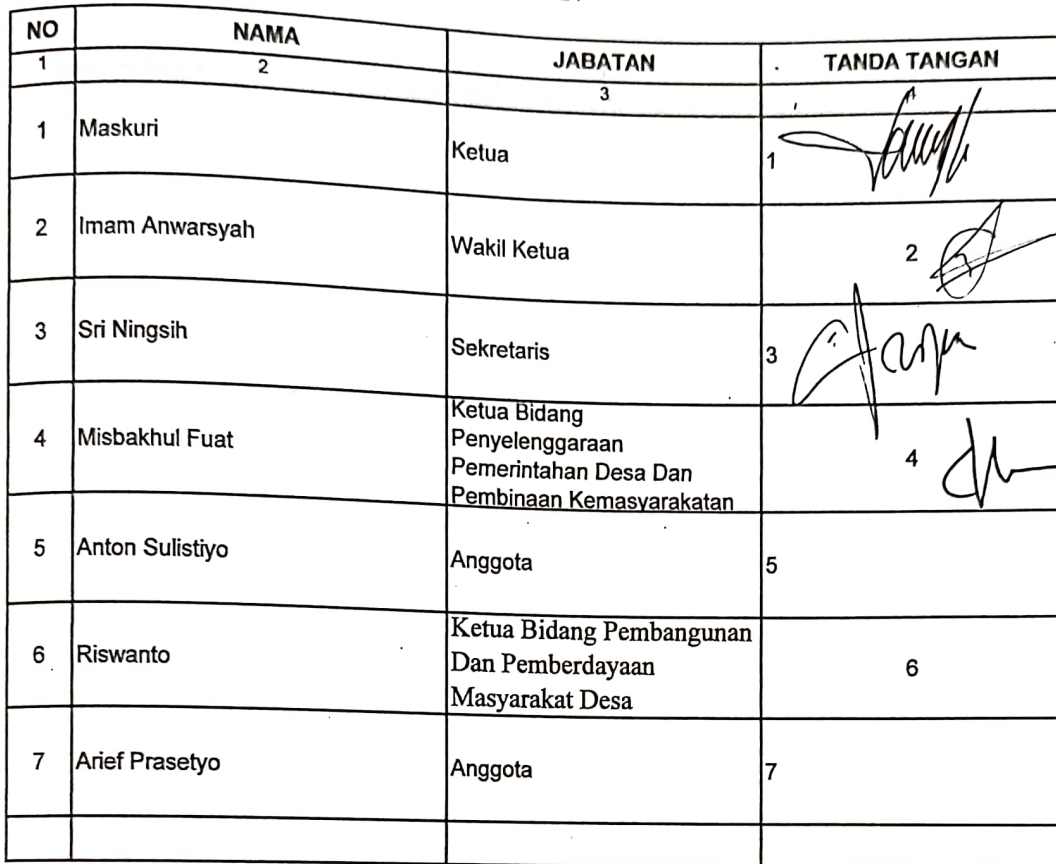 NO NAMA JABATAN TANDA TANGAN
1 2 3 4
1 Maskuri Ketua 1
2 Imam Anwarsyah Wakil Ketua 2
3 Sri Ningsih Sekretaris 3
4 Misbakhul Fuat Ketua Bidang
Penyelenggaraan
Pemerintahan Desa Dan
Pembinaan Kemasyarakatan 4
5 Anton Sulistiyo Anggota 5
6 Riswanto Ketua Bidang Pembangunan
Dan Pemberdayaan
Masyarakat Desa 6
7 Arief Prasetyo Anggota 7